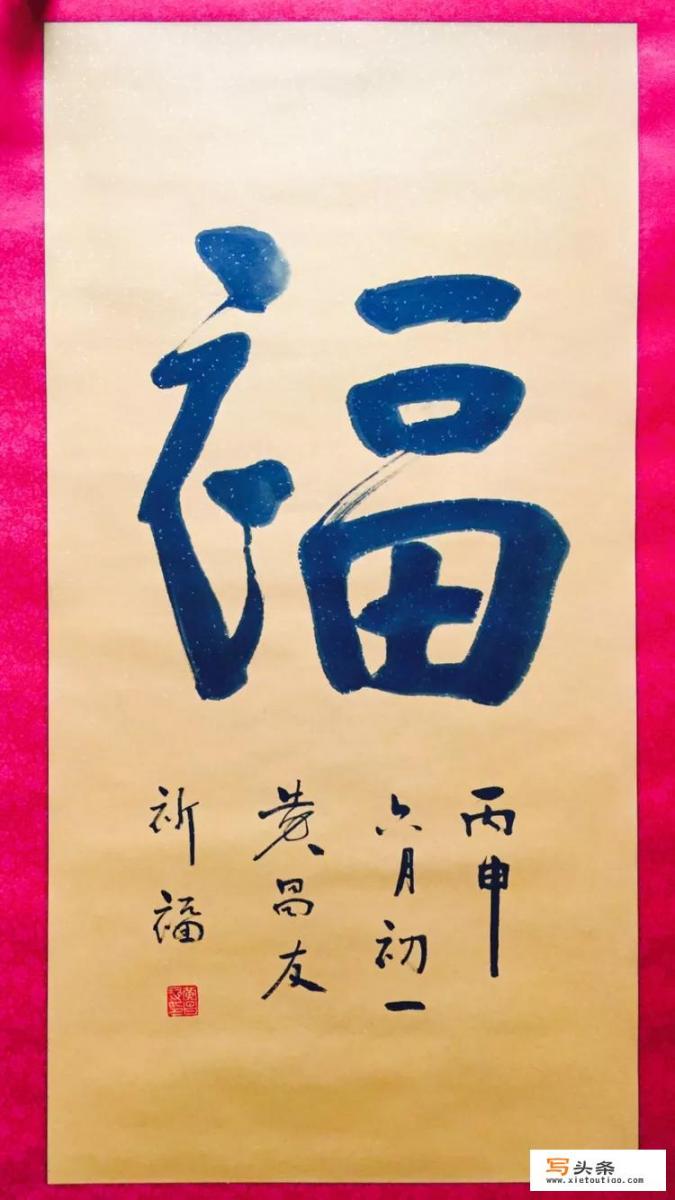 福
丙申
六月初一
黄昌友
祈福
写头条
www.xietoutiao.com